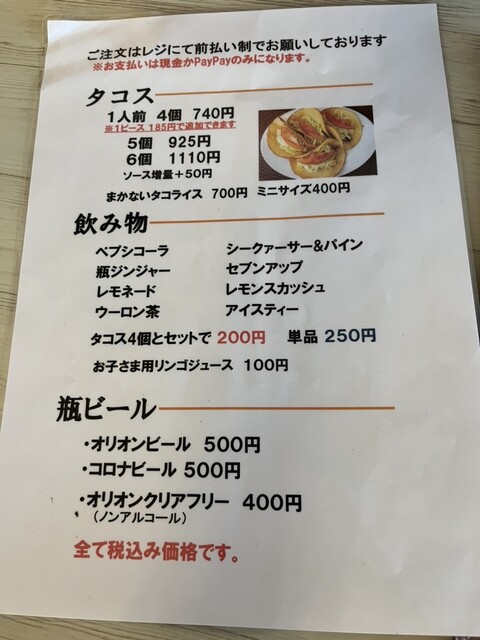 ご注文はレジにて前払い制でお願いしております
※お支払いは現金かPayPayのみになります。
タコス
1人前 4個 740円
※1ピース 185円で追加できます
5個 925円
6個 1110円
ソース増量＋50円
まかないタコライス 700円 ミニサイズ400円
飲み物
ペプシコーラ シークァーサー&パイン
瓶ジンジャー セブンアップ
レモネード レモンスカッシュ
ウーロン茶 アイスティー
タコス4個とセットで 200円 単品 250円
お子さま用リンゴジュース 100円
瓶ビール
・オリオンビール 500円
・コロナビール 500円
・オリオンクリアフリー 400円
（ノンアルコール）
全て税込み価格です。